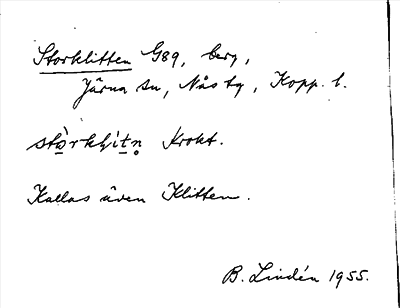 Storklitten G89, berg,
Järna sn, Nås tg, Kopp. l.
stò̱rkḷit̠n̥ Krokt.
Kallas även Klitten.
B. Lindén 1955.